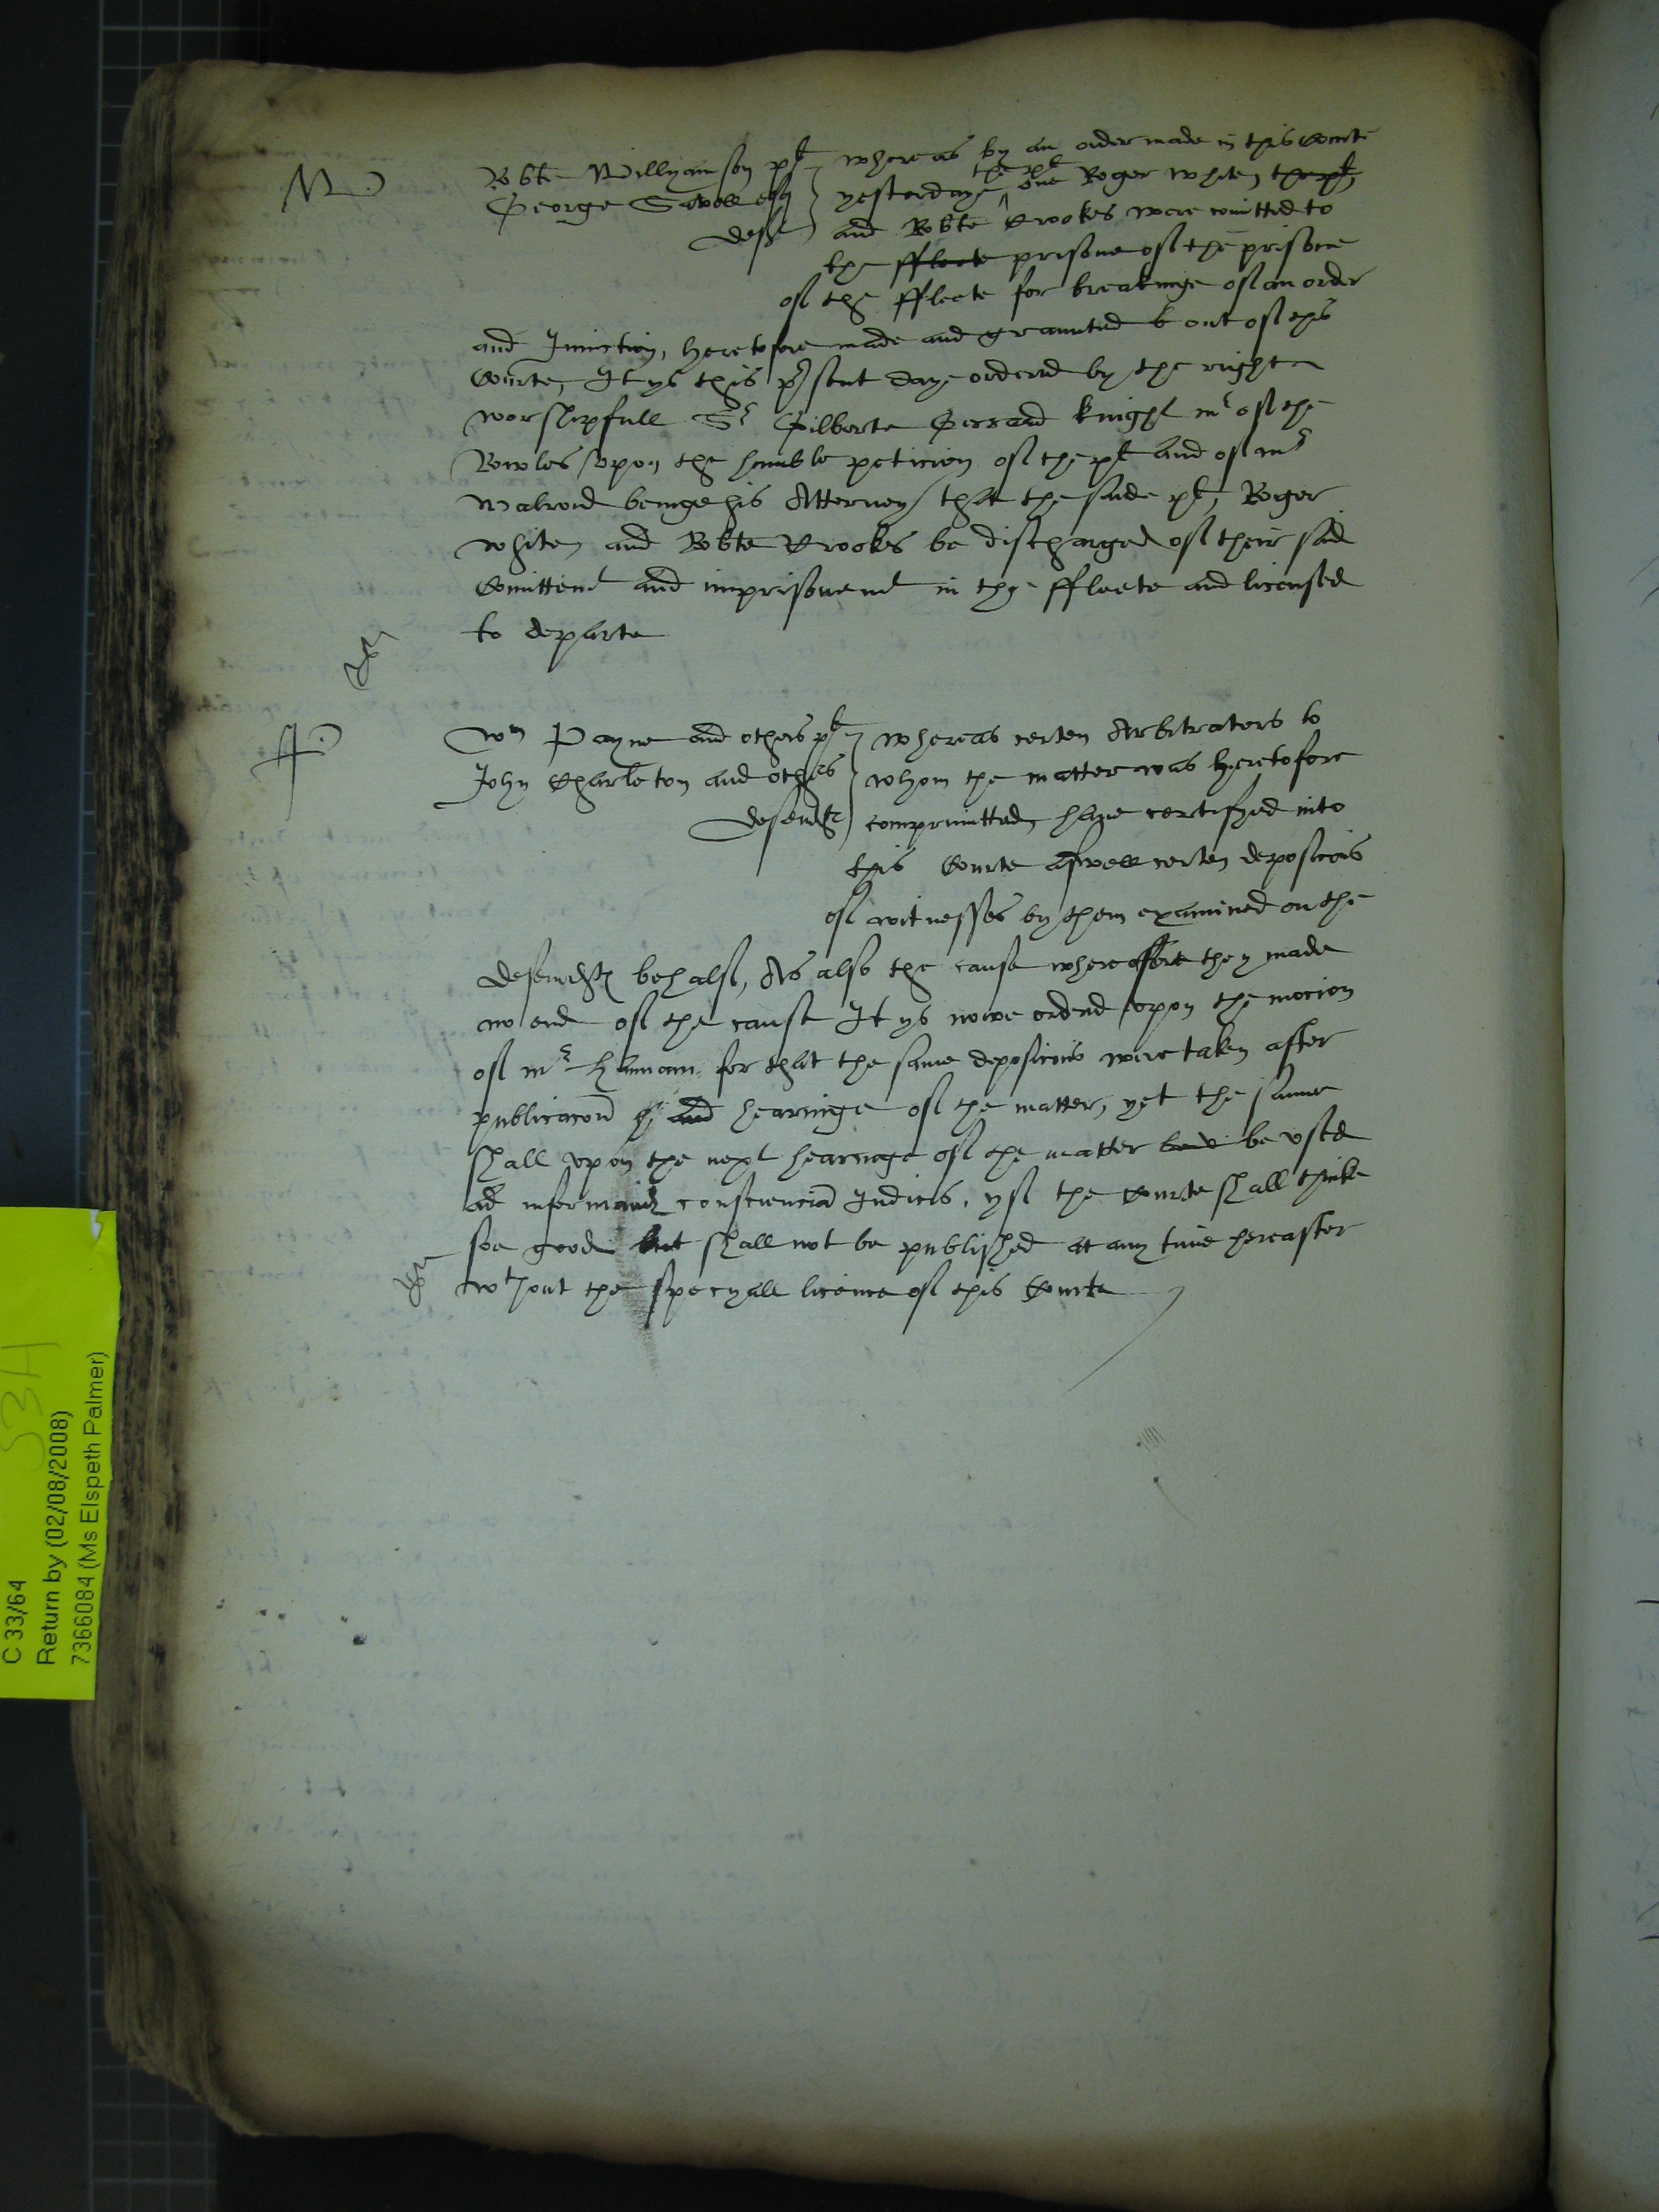 W.
Robte Willyamson plt whereas by an order made in this Courte
George Savell esq yesterdaye the plt one Roger Whiten the plt
deft and Robte Crookes were comitted to
the ffleete prisone of the prisone
of the ffleete for breakinge of an order
and Iniunction heretofore made and graunted out of this
Courte, It ys this present daye ordered by the righte
worshipfull Sr Gilberte Gerrard knight mr of the
Rowles upon the humble peticion of the plt and of mr
Walrond beinge his Attorney that the saide plt, Roger
Whiten and Robte Crookes be discharged of their said
Comittemt and imprisonemt in the ffleete and licensed
to departe
P.
Wm Payne and others plt whereas certen Arbitrators to
John Charleton and others whom the matter was heretofore
defendts comprimitted have certifyed into
this Courte aswell certen deposicons
of witnesses by them examined on the
defendts behalf, As also the cause wherefore they made
no end of the cause It ys nowe ordered upon the mocion
of mr for that the same deposicons were taken after
publicacon and hearinge of the matter, yet the same
shall upon the next hearinge of the matter be used
ad informand consciencia Iudicis, yf the Courte shall thinke
soe good but shall not be published at any time hereafter
wthout the specyall licence of this Courte
53A
C 33/64
Return by (02/08/2008)
7366084 (Ms Elspeth Palmer)